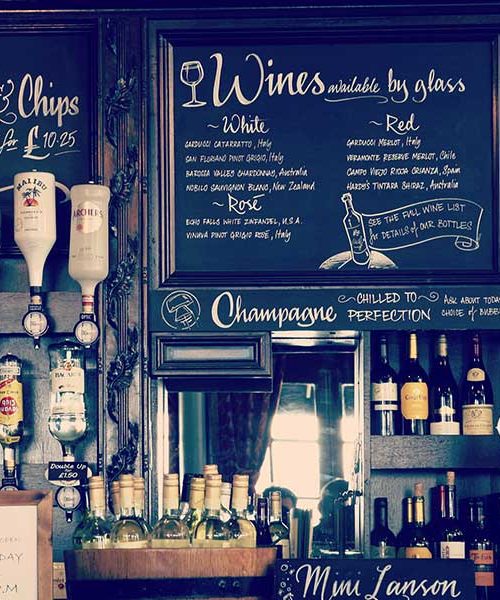 & Chips
for £10.25
Wines available by glass
~White
GARDUCCI CATARRATTO, Italy
SAN FLORIANO PINOT GRIGIO, Italy
BAROSSA VALLEY CHARDONNAY, Australia
NOBILO SAUVIGNON BLANC, New Zealand
~Rosé
ECHO FALLS WHITE ZINFANDEL, U.S.A.
VINUVA PINOT GRIGIO ROSÉ, Italy
~Red
GARDUCCI MERLOT, Italy
VERAMONTE RESERVE MERLOT, Chile
CAMPO VIEJO RIOJA CRIANZA, Spain
HARDY'S TINTARA SHIRAZ, Australia
SEE THE FULL WINE LIST
for DETAILS of OUR BOTTLES
Champagne
~CHILLED TO~
PERFECTION
ASK ABOUT TODAY
CHOICE of BUBBL
MALIBU
ARCHERS
Havana
Club
BACARDI
Double Up
£1.50
DAY
P.M
Mini Lanson